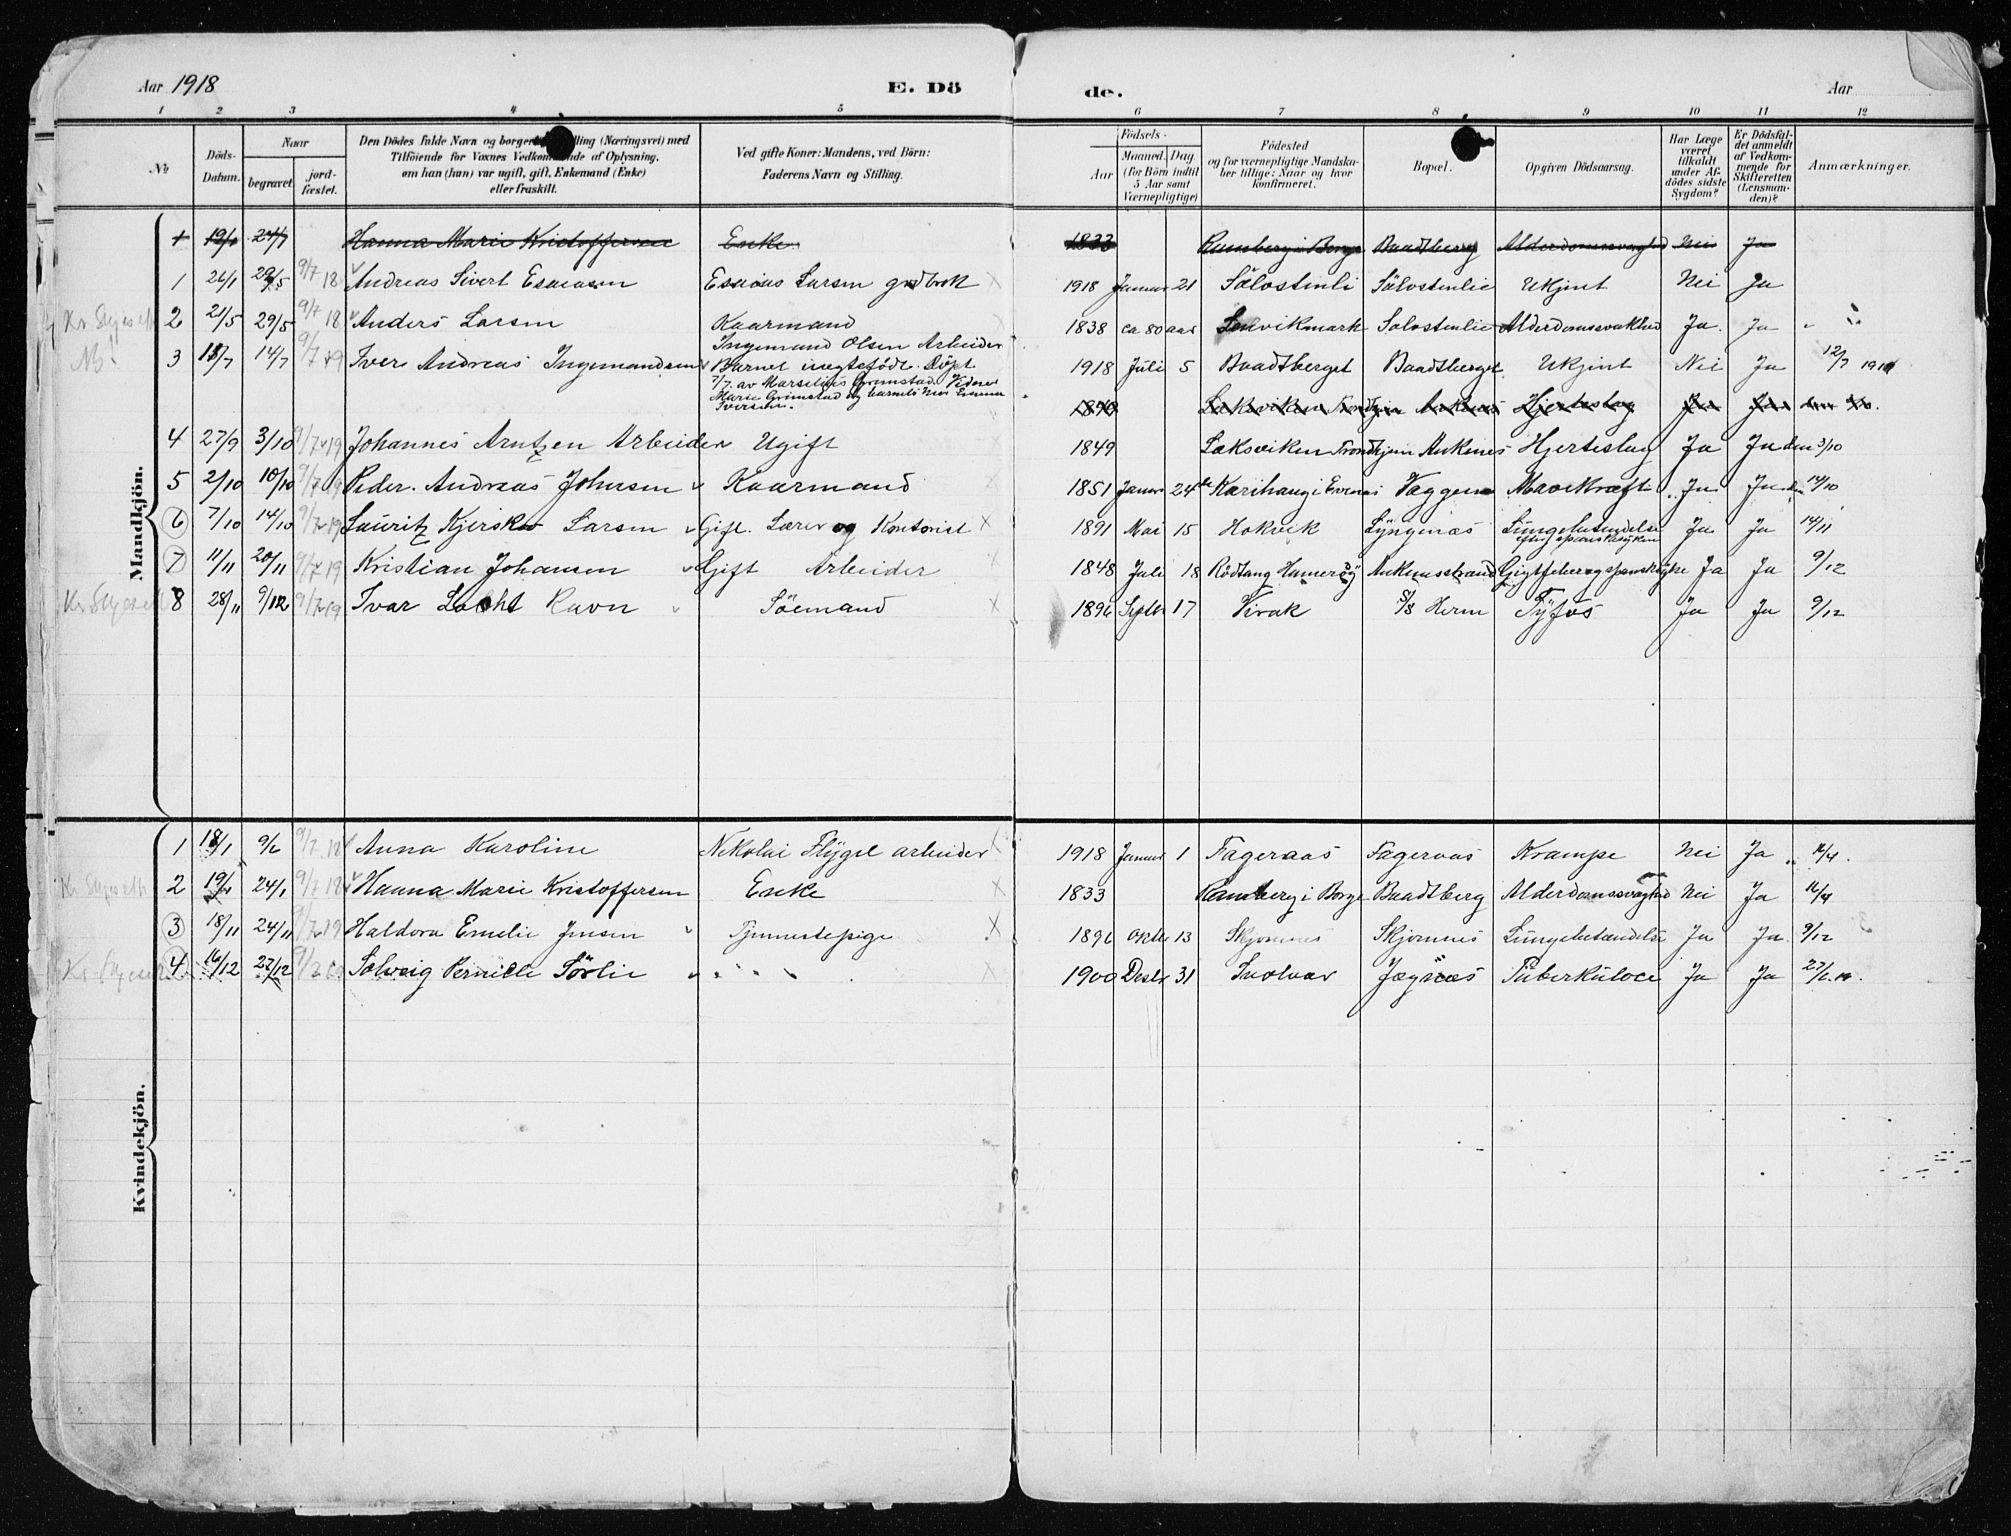 Aar 1918 E. Dö de. Aar
1 2 3 4 5 6 7 8 9 10 11 12
№
Döds-Datum.
Naar begravet. jordfæstet.
Den Dödes fulde Navn og borgerlige Stilling (Næringsvei) med
Tilföiende for Voxnes Vedkommende af Oplysning,
om han (hun) var ugift, gift, Enkemand (Enke)
eller fraskilt.
Ved gifte Koner: Mandens, ved Börn:
Faderens Navn og Stilling.
Födsels-
Aar Maaned. Dag.
(for Börn indtil
5 Aar samt
Værnepligtige)
Födested
og for værnepligtige Mandska-
ber tillige: Naar og hvor
konfirmeret.
Bopæl.
Opgiven Dödsaarsag.
Har Læge
været
tilkaldt
under Af-
dödes sidste
Sygdom?
Er Dödsfal-
det anmeldt
af Vedkom-
mende for
Skifteretten
(Lensman-
den)?
Anmærkninger.
Mandkjön.
1 19/1 24/1 Hanna Marie Kristoffersen Enke 1833 Ramberg i Borge Baadtberg Alderdomssvaghed Nei Ja
1 26/1 29/5 9/7 18 Andreas Sivert Esaiasen Esaias Larsen grdbrk 1918 Januar 21 Sölostinli Sölostinlie Ukjint Nei Ja
2 21/5 29/5 9/7 18 Anders Larsen Kaarmand 1838 ca 80 aar Senvikmark Solostinlie Alderdomssvakhed Ja. Ja
NB!
Ingemand Olsen Arbeider
3 13/7 14/7 9/7 19 Iver Andreas Ingemandsen Barnet uegtefödt. Döpt 1918 Juli 5 Baadtberget Baadtberget Ukjint Nei Ja 12/7 1918
7/7. av Marselius Grimstad. Vidner
Marie Grimstad og barnets Mor Emma
Iversen.
Laksviken Trondhjem Ankenes Hjerteslag Ja Ja
4 27/9 3/10 9/7 19 Johannes Arntzen Arbeider Ugift 1849 Laksviken Trondhjem Ankenes Hjerteslag Ja Ja den 3/10
5 2/10 10/10 9/7 19 Peder. Andreas Johnsen Kaarmand 1851 Januar 24 Karihaug i Evenes Vaggen Mavekræft Ja Ja den 14/10
6 7/10 14/10 9/7 19 Lauritz Kjerskov Larsen Gift. Lærer og Kontorist 1891 Mai 15 Hokvik Lyngenæs Lungebetendelse Ja Ja 14/11
efter spanskesyken
7 11/11 20/11 9/7 19 Kristian Johansen Gift Arbeider 1848 Juli 18 Rödtang Hameröy Ankenesstrand Gigtfeber og spansksyke Ja Ja 9/12
8 28/11 9/12 9/7 19 Ivar Locht Ravn Söemand 1896 Septbr 17 Virak S/S Herm Tyfus Ja Ja 9/12
Kvindekjön.
1 18/1 9/6 9/7 18 Anna Karoline Nikolai Flygel arbeider 1918 Januar 1 Fageraas Fageraas Krampe Nei Ja 16/4.
2 19/1 24/1 9/7 18 Hanna Marie Kristoffersen Enke 1833 Ramberg i Borge Baadtberg Alderdomssvaghed Nei Ja 16/4
3 18/11 24/11 9/7 19 Haldora Emelie Jensen Tjenestepige 1896 Oktbr 13 Skjomnes Skjomnes Lungebetændelse Ja Ja. 9/12
4 16/12 27/12 Solveig Pernille Sörlie " " " 1900 Desbr 31 Svolvær Jægnæs Tüberküloce Ja Ja 27/6.19.